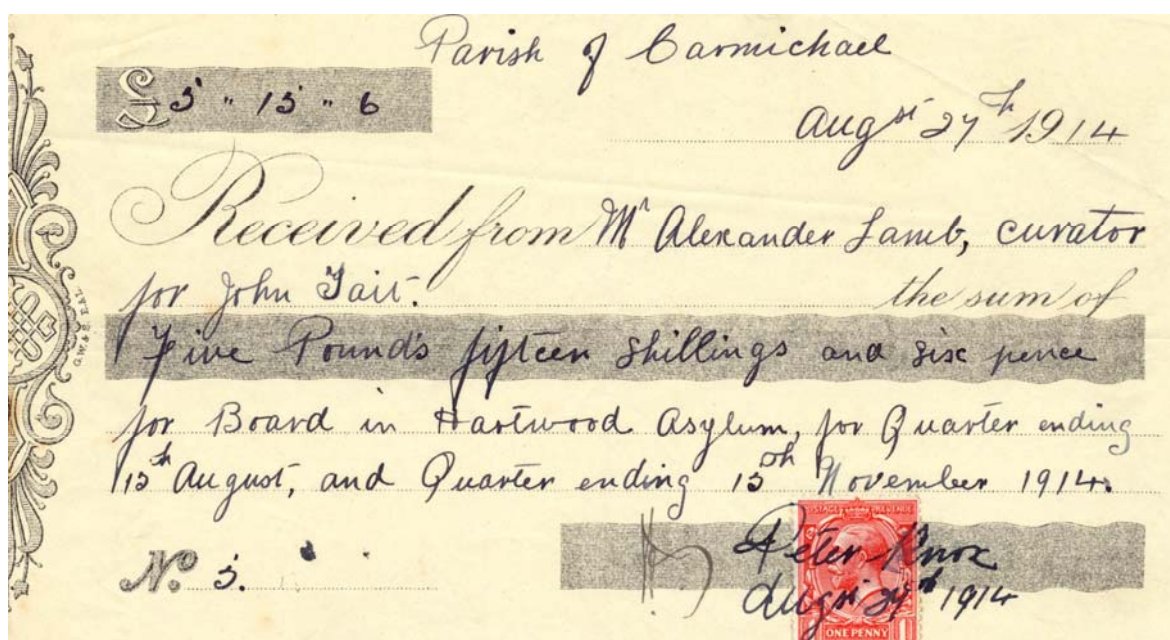 Parish of Carmichael
£5 " 15 " 6
Augst 27th 1914
Received from Mr Alexander Lamb, curator
for John Tait. the sum of
Five Pounds fifteen shillings and six pence
for Board in Hartwood Asylum, for Quarter ending
15th August, and Quarter ending 15th November 1914.
POSTAGE REVENUE
Peter Knox
No 5.
Augst 27th 1914
ONE PENNY 1